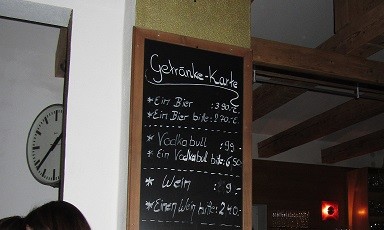 Getränke-Karte
* Ein Bier : 390.-€
* Ein Bier bitte: 2.70.-€
* Vodkabull : 99.-
* Ein Vodkabull bitte: 6.50
* Wein : 9.-
* Einen Wein bitte: 2.40.-